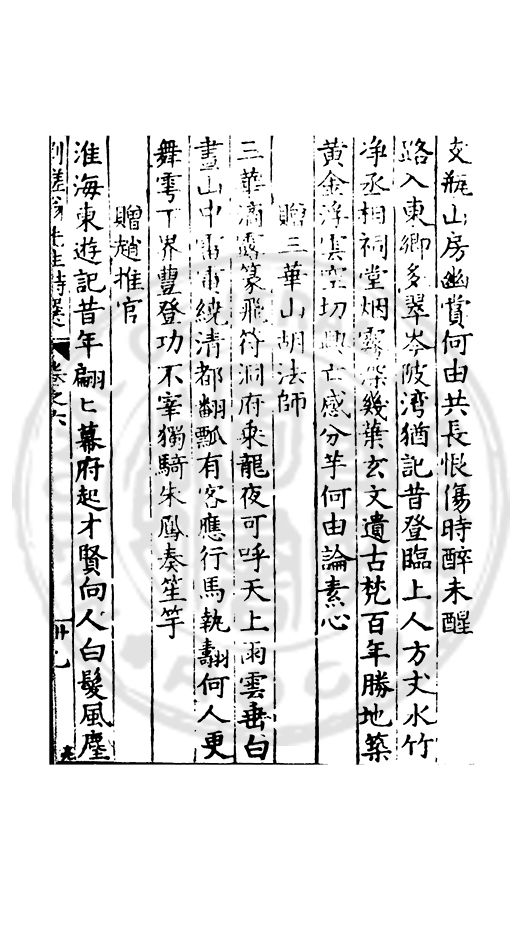 文瓶山房幽賞何由共長恨傷時醉未醒
路入東鄉多翠岑陂湾猶記昔登臨上人方丈水竹
净丞相祠堂烟霧深幾葉玄文遺古梵百年勝地築
黄金浮雲空切興亡感分芋何由論素心
贈三華山胡法師
三華滴露篆飛符洞府乘龍夜可呼天上雨雲垂白
晝山中雷雨繞清都翻瓢有客應行馬執翿何人更
舞雩下界豐登功不宰獨騎朱鳳奏笙竽
贈趙推官
淮海東遊記昔年翩〻幕府起才賢向人白髮風塵
先生詩選 卷之六 卅九